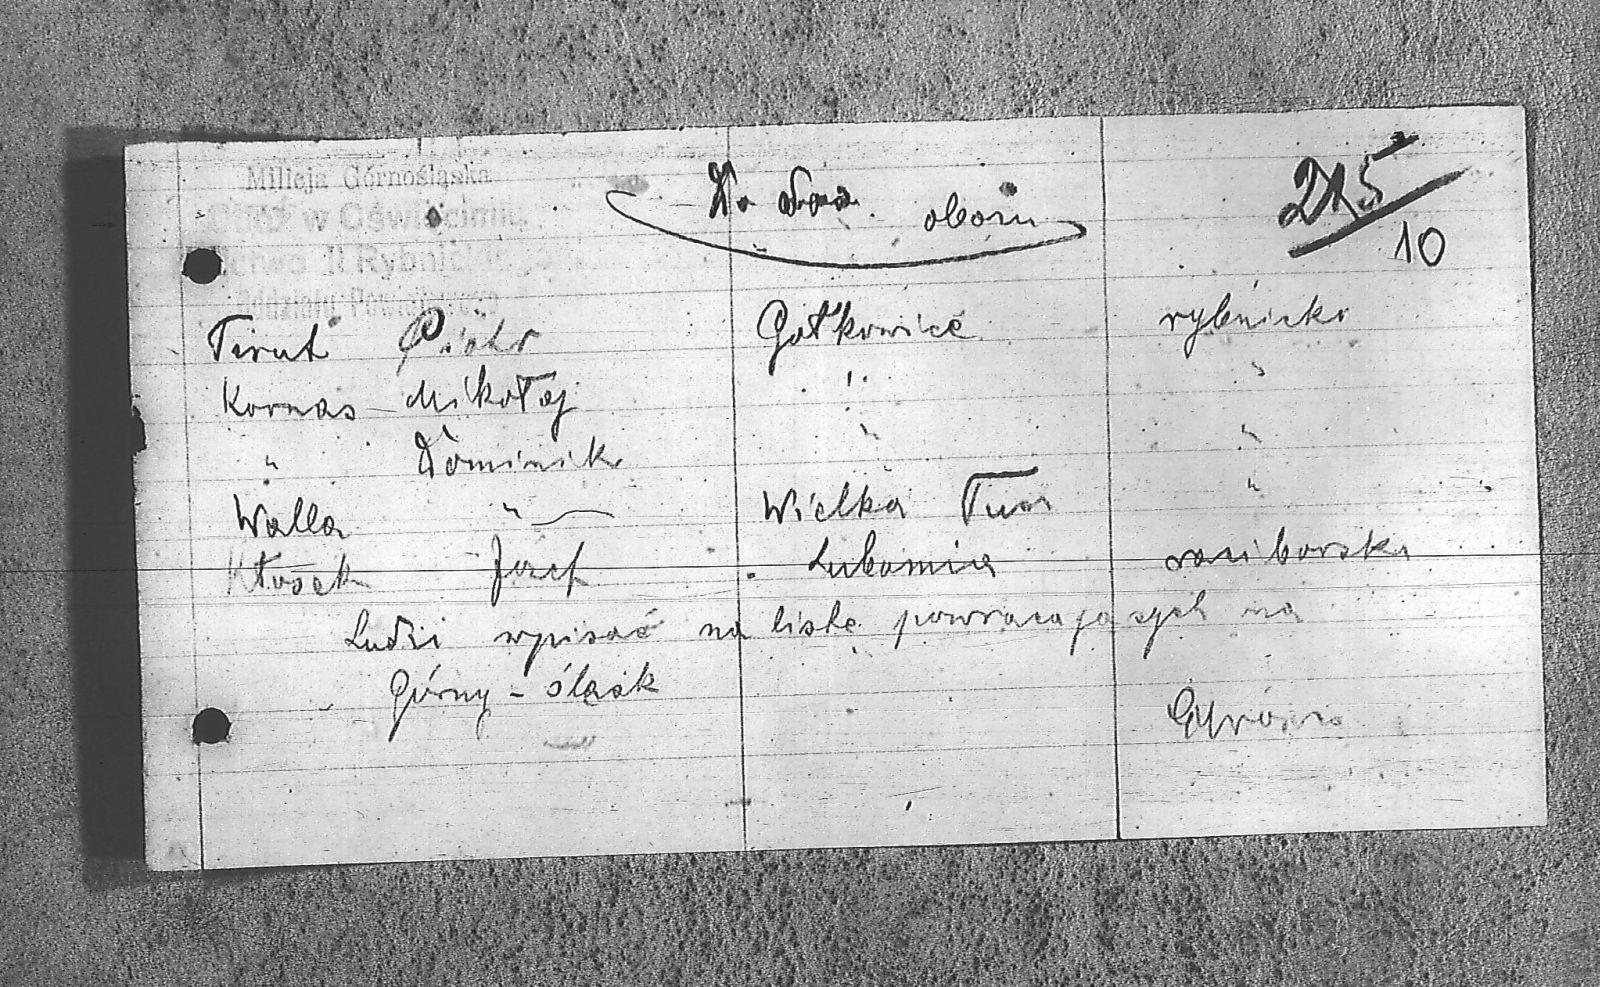 Milicja Górnośląska
Obóz w Oświęcimiu
II Rybnickie
Oddziału Powiatowego
Do obozu
215/10
Piotr Gotkowice rybnicka
Kornas Mikołaj " "
" Dominik " "
Walla " Wielka Tura "
Kłosek Józef Lubomia raciborska
Ludzi wpisać na listę powracających na
Górny-Śląsk